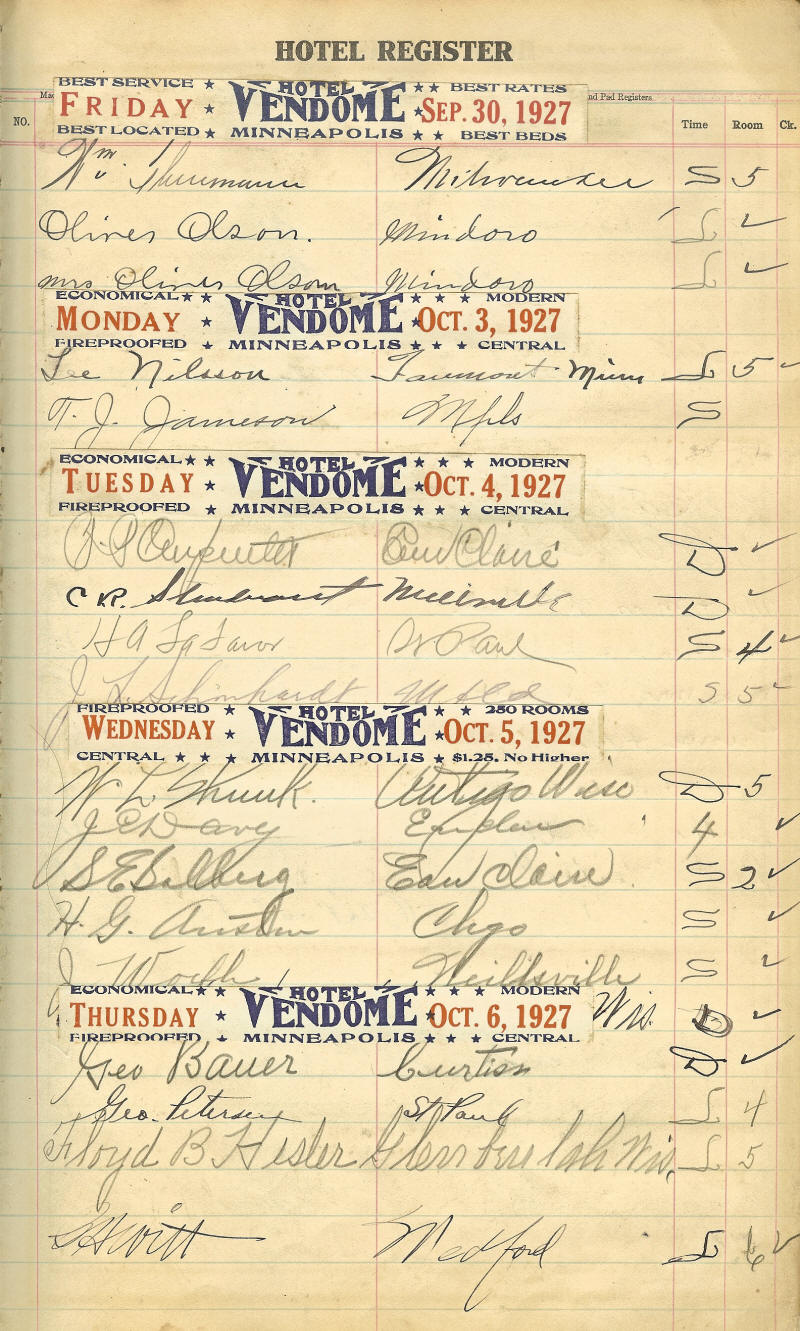 HOTEL REGISTER
nd Pad Registers.
NO. Time Room Ck.
BEST SERVICE ★ HOTEL ★★ BEST RATES
FRIDAY ★ VENDOME ★ SEP. 30, 1927
BEST LOCATED ★ MINNEAPOLIS ★★ BEST BEDS
Wm. Thurmann Milwaukee S 5
Oliver Olson. Mindoro L ✓
Mrs Oliver Olson Mindoro L ✓
ECONOMICAL ★★ HOTEL ★★★ MODERN
MONDAY ★ VENDOME ★ OCT. 3, 1927
FIREPROOFED ★ MINNEAPOLIS ★★★ CENTRAL
Lee Nilsson Fairmont Minn L 5 ✓
T. J. Jameson Mpls S
ECONOMICAL ★★ HOTEL ★★★ MODERN
TUESDAY ★ VENDOME ★ OCT. 4, 1927
FIREPROOFED ★ MINNEAPOLIS ★★★ CENTRAL
Carpenter Eau Claire D ✓
C. R. D ✓
H A La Favor St Paul S 4 ✓
J L Schinhardt S 5 ✓
FIREPROOFED ★ HOTEL ★★ 250 ROOMS
WEDNESDAY ★ VENDOME ★ OCT. 5, 1927
CENTRAL ★★★ MINNEAPOLIS ★ $1.25. No Higher
W. L. Antigo Wisc D 5
J C Davy 4 ✓
S E Salberg Eau Claire S 2 ✓
H. G. Austin Chgo S ✓
J Neillsville S ✓
ECONOMICAL ★★ HOTEL ★★★ MODERN
THURSDAY ★ VENDOME ★ OCT. 6, 1927 Wis. D ✓
FIREPROOFED ★ MINNEAPOLIS ★★★ CENTRAL
Geo Bauer Curtiss D ✓
Geo. Petersen St Paul L 4
Floyd B Hesler Glenbeulah Wis. L 5
Medford L 6 ✓